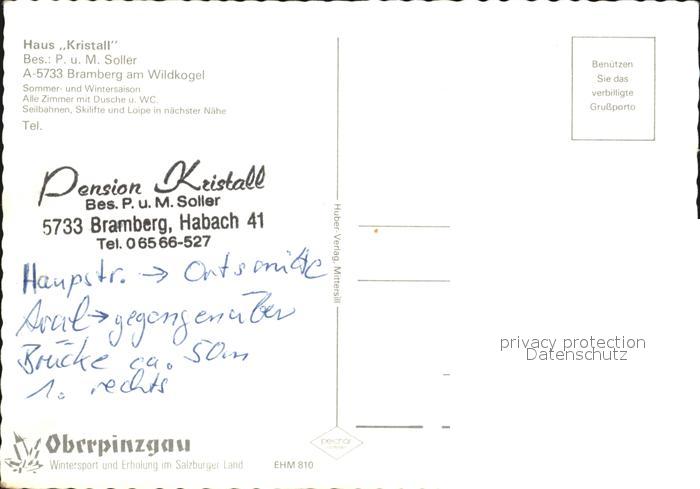 Haus „Kristall"
Bes.: P. u. M. Soller
A-5733 Bramberg am Wildkogel
Sommer- und Wintersaison
Alle Zimmer mit Dusche u. WC.
Seilbahnen, Skilifte und Loipe in nächster Nähe
Tel.
Pension Kristall
Bes. P. u. M. Soller
5733 Bramberg, Habach 41
Tel. 0 65 66-527
Haupstr. → Ortsmitte
Aral → gegangenüber
Brücke ca. 50m
1. rechts
Oberpinzgau
Wintersport und Erholung im Salzburger Land
EHM 810
Huber-Verlag, Mittersill
Benützen
Sie das
verbilligte
Grußporto
privacy protection
Datenschutz